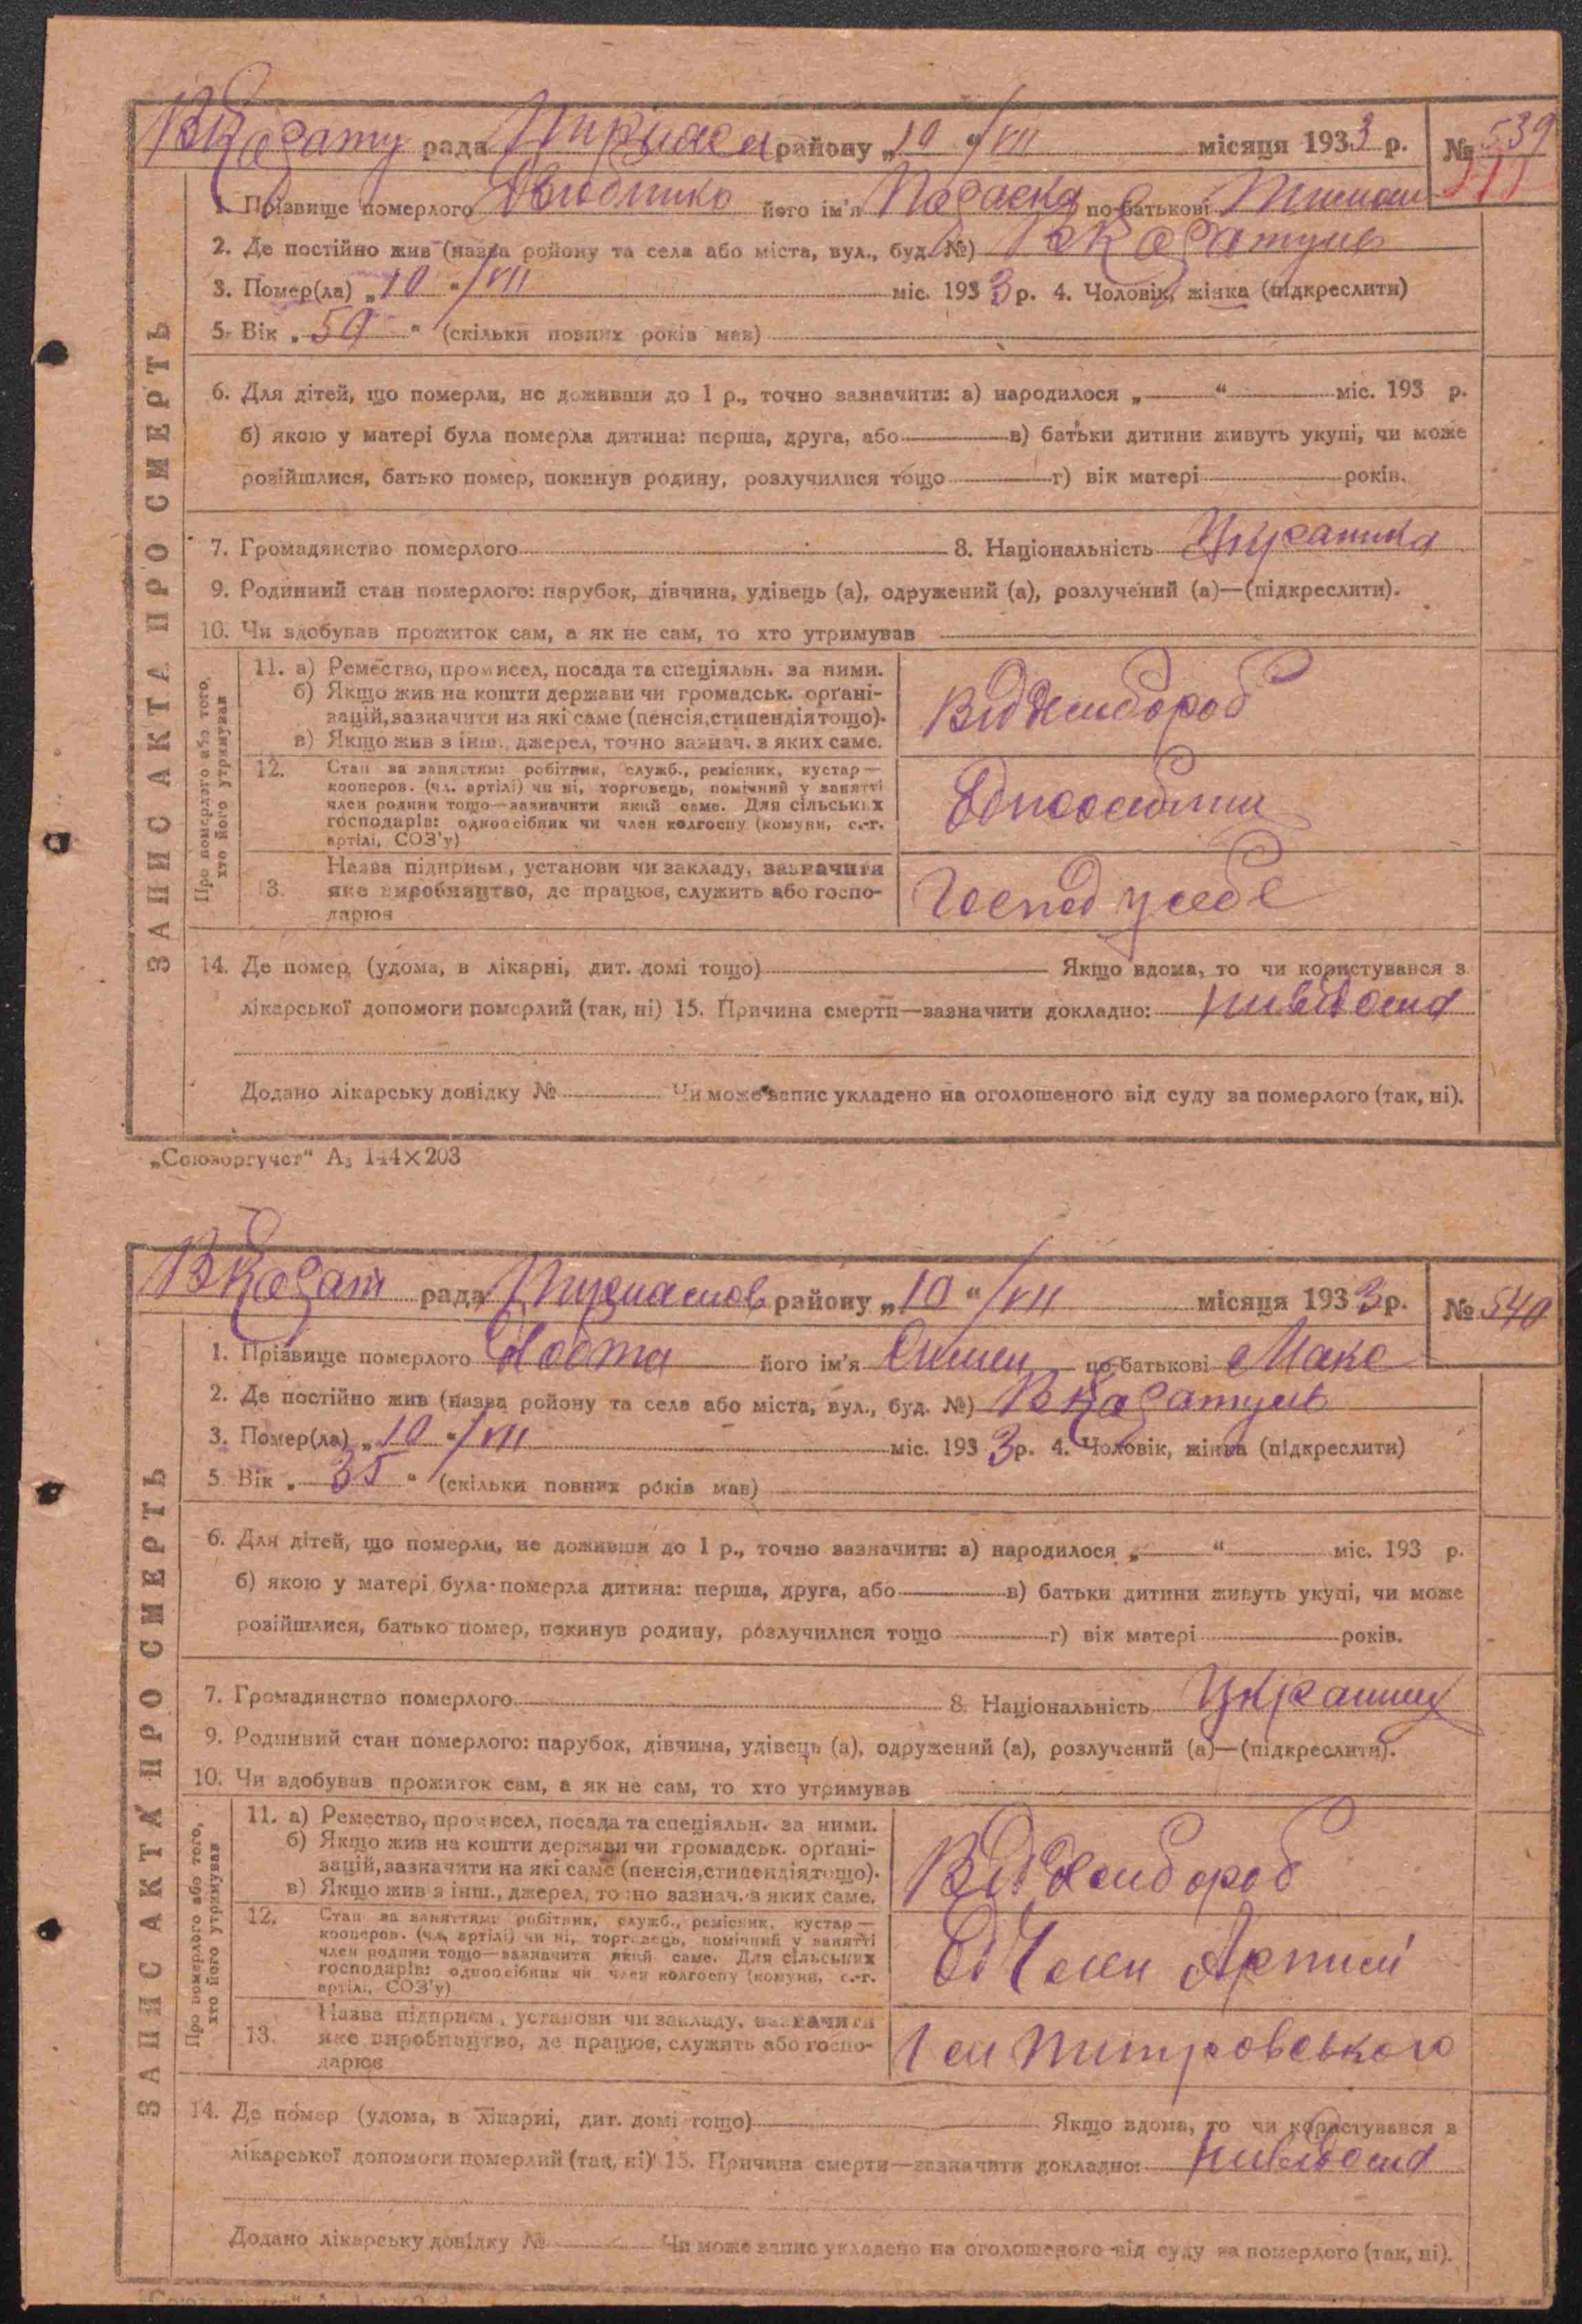 рада району „10 “ /VII місяця 1933 р. № 539
1. Прізвище померлого його ім'я по батькові
2. Де постійно жив (назва району та села або міста, вул., буд. №)
3. Помер(ла) „10 “ /VII міс. 1933 р. 4. Чоловік, жінка (підкреслити)
5. Вік „ 59 “ (скільки повних років мав)
6. Для дітей, що померли, не доживши до 1 р., точно зазначити: а) народилося „ “ міс. 193 р.
б) якою у матері була померла дитина: перша, друга, або в) батьки дитини живуть укупі, чи може
розійшлися, батько помер, покинув родину, розлучилися тощо г) вік матері років.
7. Громадянство померлого 8. Національність
9. Родинний стан померлого: парубок, дівчина, удівець (а), одружений (а), розлучений (а)—(підкреслити).
10. Чи здобував прожиток сам, а як не сам, то хто утримував
ЗАПИС АКТА ПРО СМЕРТЬ
Про померлого або того,
хто його утримував
11. а) Ремество, промисел, посада та спеціяльн. за ними.
б) Якщо жив на кошти держави чи громадськ. орґані-
зацій, зазначити на які саме (пенсія, стипендія тощо).
в) Якщо жив з інш., джерел, точно зазнач. з яких саме.
Відхлібороб
12. Стан за заняттям: робітник, служб., ремісник, кустар—
кооперов. (чл. артілі) чи ні, торговець, помічний у занятті
член родини тощо—зазначити який саме. Для сільських
господарів: одноосібник чи член колгоспу (комуни, с.-г.
артілі, СОЗ'у)
13. Назва підприєм., установи чи закладу, зазначити
яке виробництво, де працює, служить або госпо-
дарює
Господ у себе
14. Де помер (удома, в лікарні, дит. домі тощо) Якщо вдома, то чи користувався з
лікарської допомоги померлий (так, ні) 15. Причина смерти—зазначити докладно:
Додано лікарську довідку № Чи може запис укладено на оголошеного від суду за померлого (так, ні).
„Союзоргучет“ А₅ 144×203
рада району „10 “ /VII місяця 1933 р. № 540
1. Прізвище померлого його ім'я по батькові Макс
2. Де постійно жив (назва району та села або міста, вул., буд. №)
3. Помер(ла) „10 “ /VII міс. 1933 р. 4. Чоловік, жінка (підкреслити)
5. Вік „ 35 “ (скільки повних років мав)
6. Для дітей, що померли, не доживши до 1 р., точно зазначити: а) народилося „ “ міс. 193 р.
б) якою у матері була померла дитина: перша, друга, або в) батьки дитини живуть укупі, чи може
розійшлися, батько помер, покинув родину, розлучилися тощо г) вік матері років.
7. Громадянство померлого 8. Національність
9. Родинний стан померлого: парубок, дівчина, удівець (а), одружений (а), розлучений (а)—(підкреслити).
10. Чи здобував прожиток сам, а як не сам, то хто утримував
ЗАПИС АКТА ПРО СМЕРТЬ
Про померлого або того,
хто його утримував
11. а) Ремество, промисел, посада та спеціяльн. за ними.
б) Якщо жив на кошти держави чи громадськ. орґані-
зацій, зазначити на які саме (пенсія, стипендія тощо).
в) Якщо жив з інш., джерел, точно зазнач. з яких саме.
Відхлібороб
12. Стан за заняттям: робітник, служб., ремісник, кустар—
кооперов. (чл. артілі) чи ні, торговець, помічний у занятті
член родини тощо—зазначити який саме. Для сільських
господарів: одноосібник чи член колгоспу (комуни, с.-г.
артілі, СОЗ'у)
Член Артилі
13. Назва підприєм., установи чи закладу, зазначити
яке виробництво, де працює, служить або госпо-
дарює
14. Де помер (удома, в лікарні, дит. домі тощо) Якщо вдома, то чи користувався з
лікарської допомоги померлий (так, ні) 15. Причина смерти—зазначити докладно:
Додано лікарську довідку № Чи може запис укладено на оголошеного від суду за померлого (так, ні).